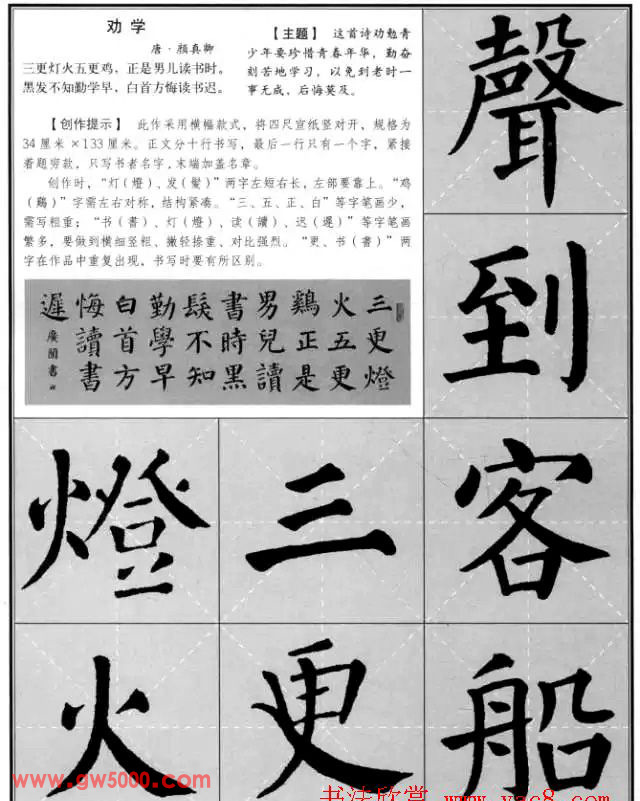 劝学
唐·颜真卿
三更灯火五更鸡，正是男儿读书时。
黑发不知勤学早，白首方悔读书迟。
【主题】 这首诗劝勉青
少年要珍惜青春年华，勤奋
刻苦地学习，以免到老时一
事无成，后悔莫及。
【创作提示】 此作采用横幅款式，将四尺宣纸竖对开，规格为
34厘米×133厘米。正文分十行书写，最后一行只有一个字，紧接
着题穷款，只写书者名字，末端加盖名章。
创作时，“灯（燈）、发（髮）”两字左短右长，左部要靠上。“鸡
（鷄）”字需左右对称，结构紧凑。“三、五、正、白”等字笔画少，
需写粗重；“书（書）、灯（燈）、读（讀）、迟（遲）”等字笔画
繁多，要做到横细竖粗、撇轻捺重、对比强烈。“更、书（書）”两
字在作品中重复出现，书写时要有所区别。
三更燈
火五更
鷄正是
男兒讀
書時黑
髮不知
勤學早
白首方
悔讀書
遲
聲到客船
三更
燈火
www.gw5000.com
书法欣赏 www.yac8.com